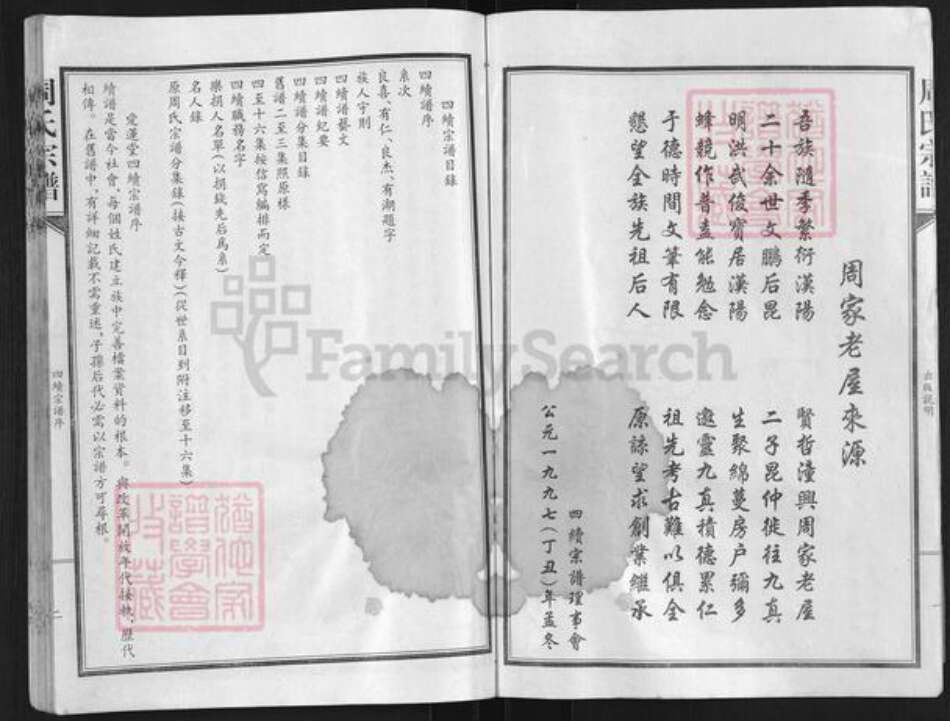 周氏宗譜
出版説明
周家老屋來源
吾族隨季繁衍漢陽 賢哲潼興周家老屋
二十余世文鵬后昆 二子昆仲徙往九真
明洪武俊寶居漢陽 生聚綿蔓房户彌多
蜂競作昔孟能勉念 邀靈九真積德累仁
于德時間文筆有限 祖先考古難以俱全
懇望全族先祖后人 原諒望求創業繼承
四續宗譜理事會
公元一九九七(丁丑)年孟冬
四續宗譜目錄
四續譜序
系次
良喜、有仁、良杰、有潮題字
族人字則
四續譜藝文
四續譜紀要
四續譜分集目録
舊譜二至三集照原樣
四至十六集按信寫編排而定
四續職務名字
樂捐人名單(以捐錢先后爲系)
名人錄
原周氏宗譜分集録(接古文今釋)(從世系目到附注移至十六集)
愛蓮堂四續宗譜序
續譜是當今社會、每個姓氏建立族中完善檔案資料的根本。與改革開放年代接軌、歷代
相傳。在舊譜中、有詳細記載不需重述、子孫后代必需以宗譜方可尋根。
周氏宗譜
四續宗譜序
二
FamilySearch